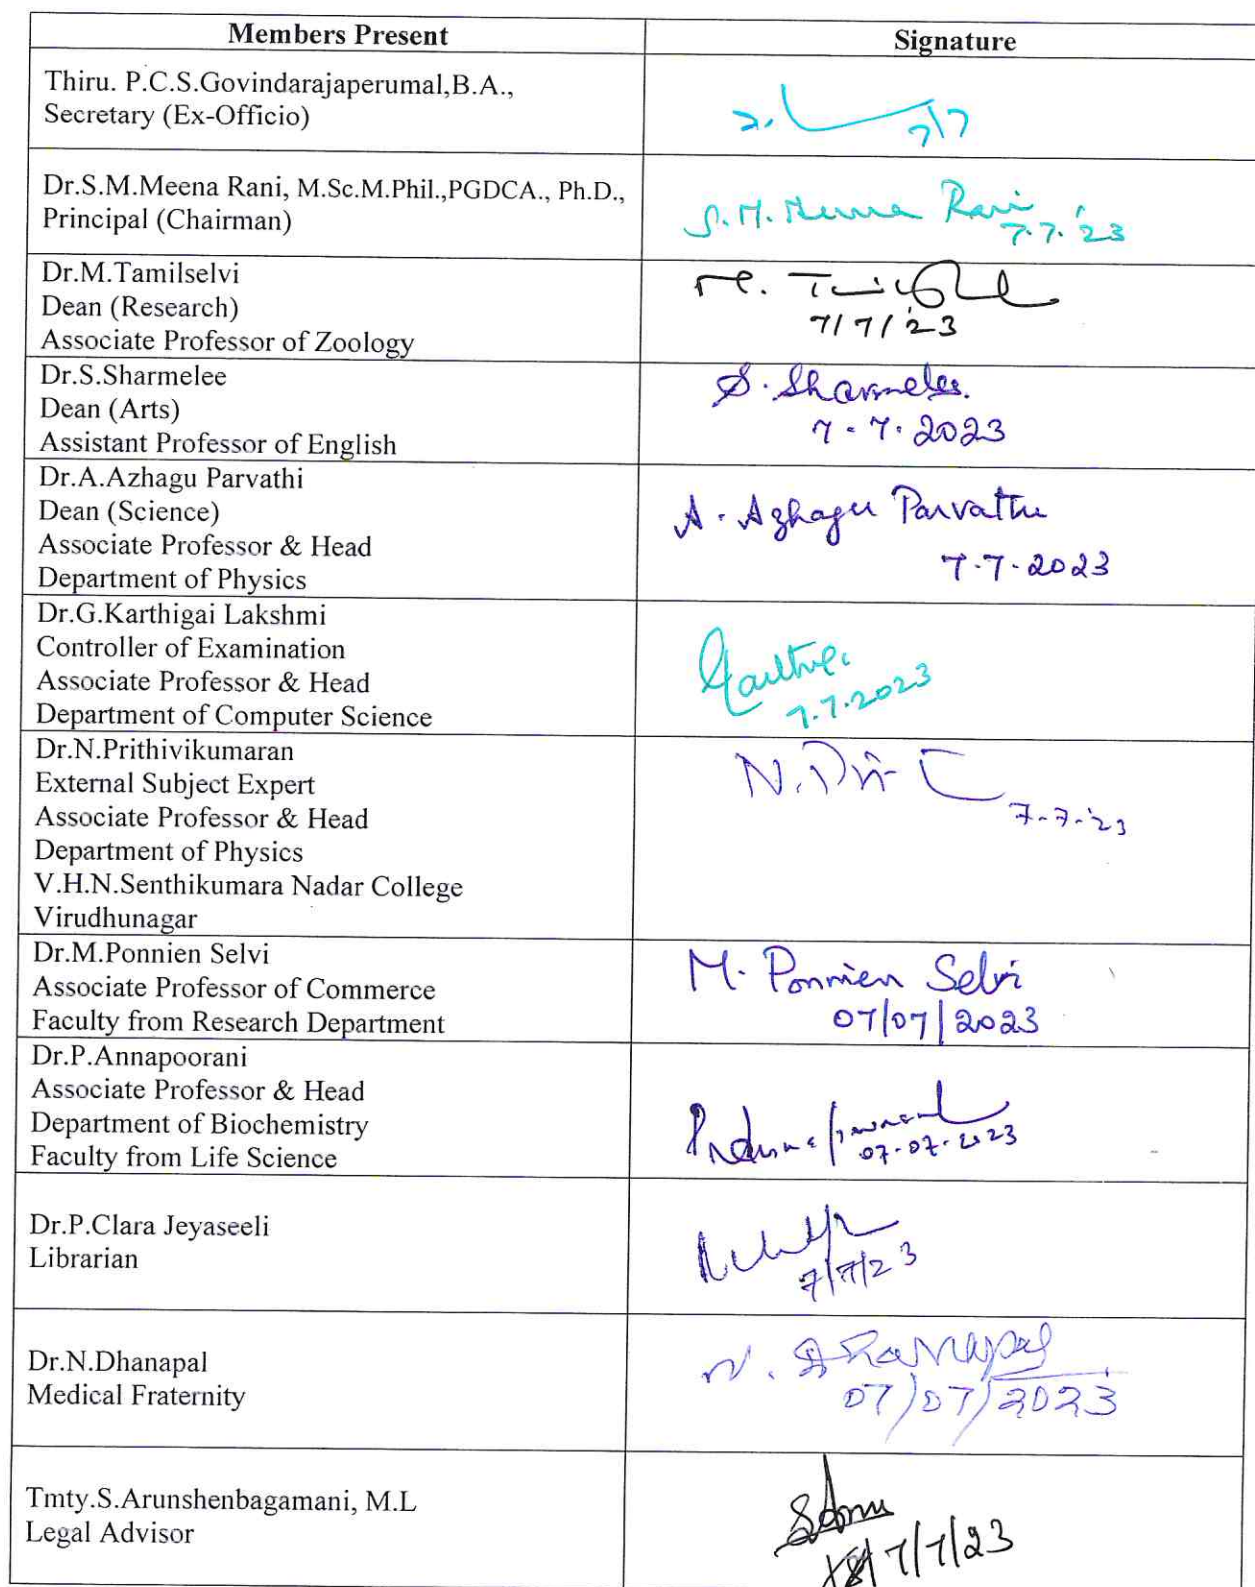 Members Present
Signature
Thiru. P.C.S.Govindarajaperumal,B.A.,
Secretary (Ex-Officio)
7/7
Dr.S.M.Meena Rani, M.Sc.M.Phil.,PGDCA., Ph.D.,
Principal (Chairman)
S.M. Meena Rani
7.7.'23
Dr.M.Tamilselvi
Dean (Research)
Associate Professor of Zoology
7/7/'23
Dr.S.Sharmelee
Dean (Arts)
Assistant Professor of English
S. Sharmelee.
7.7.2023
Dr.A.Azhagu Parvathi
Dean (Science)
Associate Professor & Head
Department of Physics
A. Azhagu Parvathi
7.7.2023
Dr.G.Karthigai Lakshmi
Controller of Examination
Associate Professor & Head
Department of Computer Science
7.7.2023
Dr.N.Prithivikumaran
External Subject Expert
Associate Professor & Head
Department of Physics
V.H.N.Senthikumara Nadar College
Virudhunagar
7-7-'23
Dr.M.Ponnien Selvi
Associate Professor of Commerce
Faculty from Research Department
M. Ponnien Selvi
07/07/2023
Dr.P.Annapoorani
Associate Professor & Head
Department of Biochemistry
Faculty from Life Science
07-07-2023
Dr.P.Clara Jeyaseeli
Librarian
7/7/23
Dr.N.Dhanapal
Medical Fraternity
N. Dhanapal
07/07/2023
Tmty.S.Arunshenbagamani, M.L
Legal Advisor
7/7/23